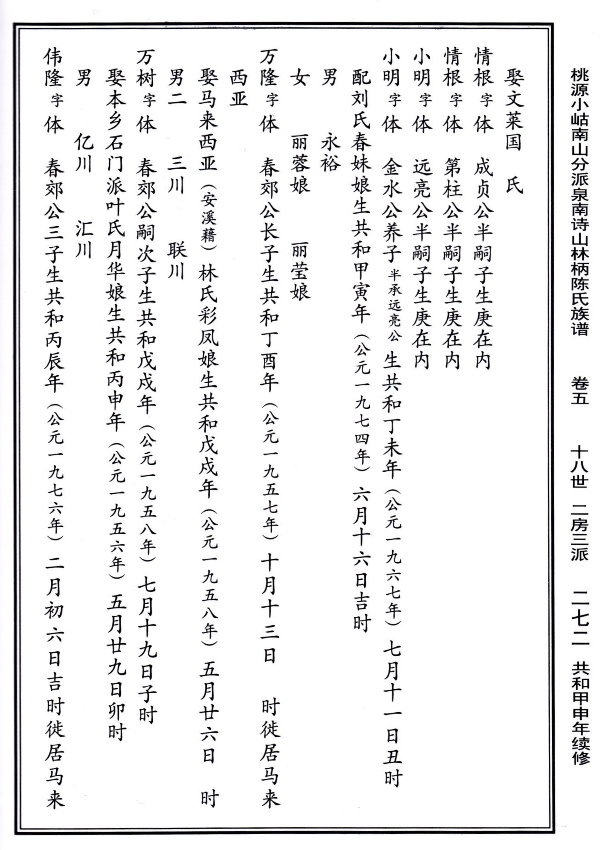 桃源小岵南山分派泉南诗山林柄陈氏族谱　卷五　十八世　二房三派　二七二　共和甲申年续修
娶文莱国　氏
情根字　体　成贞公半嗣子生庚在内
情根字　体　第柱公半嗣子生庚在内
小明字　体　远亮公半嗣子生庚在内
小明字　体　金水公养子半承远亮公生共和丁未年（公元一九六七年）七月十一日丑时
配刘氏春妹娘生共和甲寅年（公元一九七四年）六月十六日吉时
男　永裕
女　丽蓉娘　丽莹娘
万隆字　体　春郊公长子生共和丁酉年（公元一九五七年）十月十三日　时徙居马来
西亚
娶马来西亚（安溪藉）林氏彩凤娘生共和戊戍年（公元一九五八年）五月廿六日　时
男二　三川　联川
万树字　体　春郊公嗣次子生共和戊戍年（公元一九五八年）七月十九日子时
娶本乡石门派叶氏月华娘生共和丙申年（公元一九五六年）五月廿九日卯时
男　亿川　汇川
伟隆字　体　春郊公三子生共和丙辰年（公元一九七六年）二月初六日吉时徙居马来